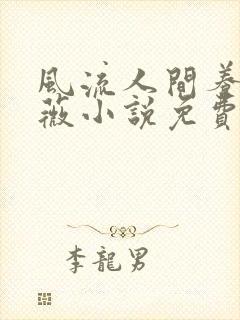 風流人間養
薇小說免費
李龍男